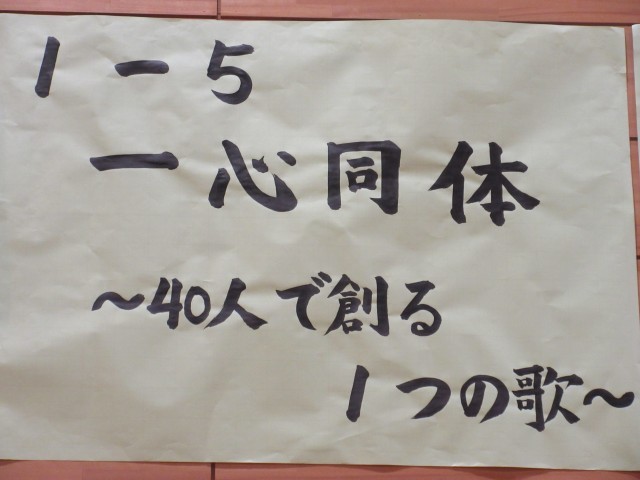 1-5
一心同体
～40人で創る
1つの歌～